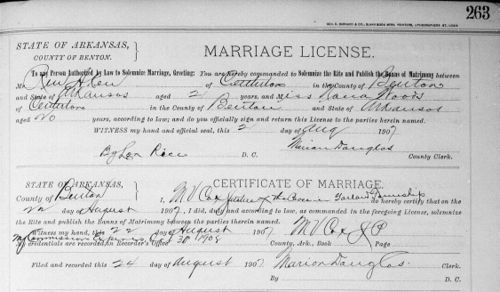 263
STATE OF ARKANSAS,
COUNTY OF BENTON.
MARRIAGE LICENSE.
To any Person Authorized by Law to Solemnize Marriage, Greeting: You are hereby commanded to Solemnize the Rite and Publish the Banns of Matrimony between
Mr. of Centerton in the County of Benton
and State of Arkansas aged 2 years, and Miss Woods
of Centerton in the County of Benton and State of Arkansas
aged 20 years, according to law; and do you officially sign and return this License to the parties herein named.
WITNESS my hand and official seal, this 2 day of Aug 1907
By Lon Rice D. C. Marion Douglas County Clerk.
STATE OF ARKANSAS,
County of Benton
CERTIFICATE OF MARRIAGE.
I, M V Cox Justice of the Township do hereby certify that on the
22 day of August 1907, I did, duly and according to law, as commanded in the foregoing License, solemnize
the Rite and publish the Banns of Matrimony between the parties therein named.
Witness my hand, this 22 day of August 1907 M V Cox J P
My Commission Expires 30 1908
credentials are recorded in Recorder's Office County, Ark., Book Page
Filed and recorded this 24 day of August 1907 Marion Douglas. Clerk.
By D. C.